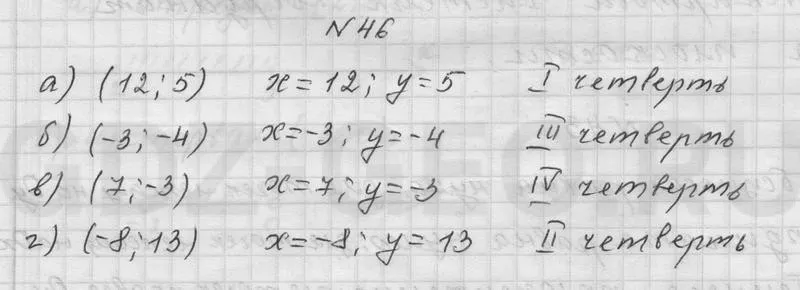 N 46
а) (12; 5) x = 12; y = 5 I четверть
б) (-3; -4) x = -3; y = -4 III четверть
в) (7; -3) x = 7; y = -3 IV четверть
г) (-8; 13) x = -8; y = 13 II четверть